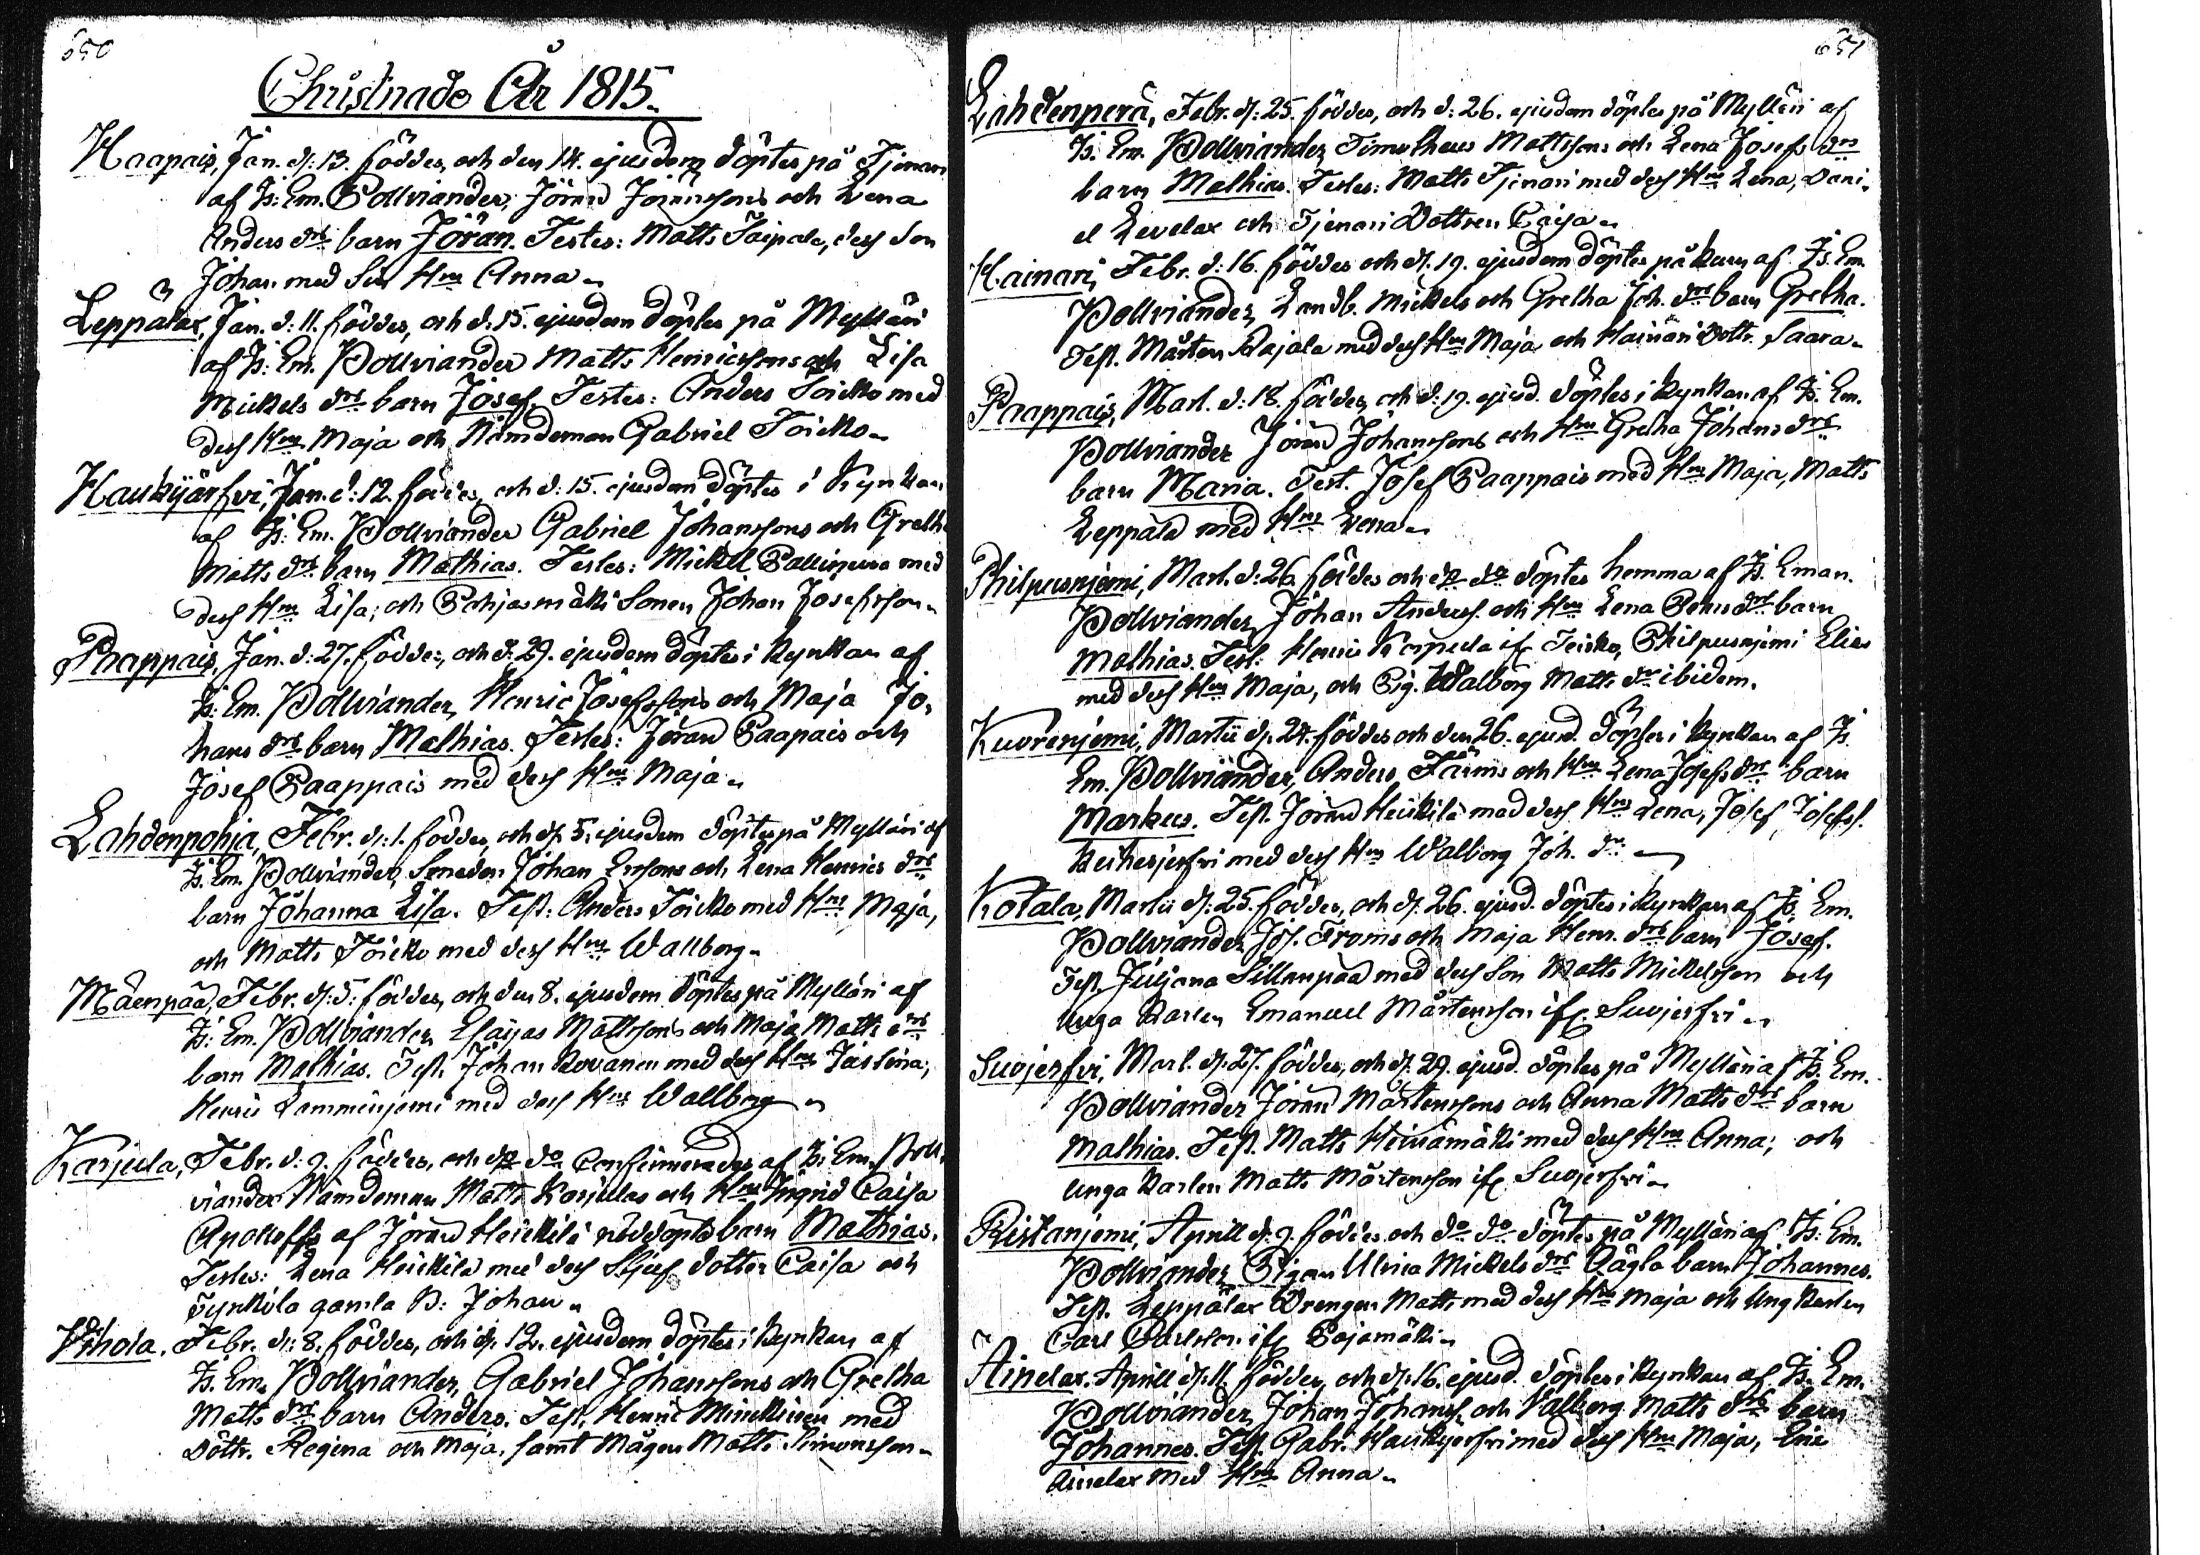 650
Christnade År 1815.
Haapais, Jan. d: 13. föddes, och den 14. ejusdem döptes på Tjenari
af Ps: Em. Pollviander, Jöran Jöranssons och Lena
Anders drs barn Jöran. Testes: Matts Taipale, dess Son
Johan med Sin Hru Anna.
Leppälax, Jan. d: 11. föddes, och d: 15. ejusdem döptes på Mylläri
af Ps: Em. Pollviander Matts Henricssons och Lisa
Mickels drs barn Josef. Testes: Anders Toicko med
dess Hru Maja och Nämdeman Gabriel Toicko.
Haukijärfvi, Jan. d: 12. föddes, och d: 15. ejusdem döptes i Kyrkan
af Ps: Em. Pollviander Gabriel Johanssons och Greth
Matts drs barn Mathias. Testes: Mickel med
dess Hru Lisa; och Pohjasmäki Sonen Johan Josefsson.
Paappais, Jan. d: 27. föddes, och d: 29. ejusdem döptes i Kyrkan af
Ps: Em. Pollviander, Henric Josefssons och Maja Jo-
hans drs barn Mathias. Testes: Jöran Paapais och
Josef Paappais med dess Hru Maja.
Lahdenpohja, Febr. d: 1. föddes, och d: 5. ejusdem döptes på Mylläri af
Ps: Em. Pollviander, Smeden Johan Erssons och Lena Henrics drs
barn Johanna Lisa. Test: Anders Toicko med Hru Maja,
och Matts Toicko med dess Hru Wallborg.
Mäenpää, Febr. d: 5: föddes, och den 8. ejusdem döptes på Mylläri af
Ps: Em. Pollviander Esaijas Mattssons och Maja Matts drs
barn Mathias. Test. Johan Rovanen med dess Hru Justina;
Henric Lamminjemi med dess Hru Wallborg
Karjula, Febr. d: 9. föddes, och do do Confirmerades af Ps: Em. Poll-
viander Nämdeman Matts Karjulas och Hru Ingrid Caisa
af Jöran Heickilä nöddöpte barn Mathias.
Testes: Lena Heickilä med dess Stjuf dotter Caisa och
Tynkilä gamla B: Johan.
Vihola, Febr. d: 8. föddes, och d: 12. ejusdem döptes i Kyrkan af
Ps. Em. Pollviander, Gabriel Johanssons och Gretha
Matts drs barn Anders. Test. Henric Minckinen med
Döttr. Regina och Maja, samt Mågen Matts Simonsson.
651
Lahdenperä, Febr. d: 25. föddes, och d: 26. ejusdem döptes på Mylläri af
Ps. Em. Pollviander, Timotheus Mattssons och Lena Josefs drs
barn Mathias. Testes: Matts Tjenari med dess Hru Lena, Dani-
el Levelax och Tjenari Dottren Caisa.
Kainari, Febr. d: 16. föddes och d. 19. ejusdem döptes på Kurn af Ps. Em.
Pollviander, Landb. Mickels och Gretha Joh. drs barn Gretha.
Test. Mårten Rajala med dess Hru Maja och Kainari Dottr. Saara.
Paappais, Mart. d: 18. föddes, och d: 19. ejusd. döptes i Kyrkan af Ps. Em.
Pollviander Jöran Johanssons och Hru Gretha Johans drs
barn Maria. Test. Josef Paappais med Hru Maja, Matts
Leppälä med Hru Lena.
Philpusnjemi, Mart. d: 26 föddes och do do döptes hemma af Ps. Eman.
Pollviander, Johan Anderss. och Hru Lena drs barn
Mathias. Test: Henric Karpula if. Teisko, Philpusnjemi Elias
med dess Hru Maja, och Pig. Walborg Matts dr ibidem.
Kuorenjemi, Martii d. 24. föddes och den 26. ejusd. döptes i Kyrkan af Ps.
Em. Pollviander, Anders Färms och Hru Lena Josefs drs barn
Markus. Test. Jöran Heickilä med dess Hru Lena, Josef Josefss.
med dess Hru Walborg Joh. dr.
Kotala, Martii d: 25. föddes, och d. 26. ejusd. döptes i Kyrkan af Ps. Em.
Pollviander, Jos. Froms och Maja Henr. drs barn Josef.
Test. Juljana Sillanpää med dess Son Matts Mickelsson och
unga Karlen Emanuel Mårtensson ifr. Suojerfvi.
Suojerfvi, Mart. d. 27. föddes, och d. 29. ejusd. döptes på Mylläri af Ps. Em.
Pollviander Jöran Mårtenssons och Anna Matts drs barn
Mathias. Test. Matts Heinämäki med dess Hru Anna; och
unga Karlen Matts Mårtensson ifr. Suojerfvi.
Ristanjemi, Aprill d. 9. föddes och do do döptes på Mylläri af Ps: Em.
Pollviander, Pigan Ulrica Mickels drs Oägta barn Johannes.
Test. Leppälax Drengen Matts med dess Hru Maja och Ung Karlen
Carl Carlsson ifr. Pajamäki.
Ainelax. Aprill d. 11. föddes, och d. 16. ejusd. döptes i Kyrkan af Ps. Em.
Pollviander, Johan Johanss. och Valborg Matts drs barn
Johannes. Test. Gabr. Haukijerfvi med dess Hru Maja, Eric
Ainelax med Hru Anna.